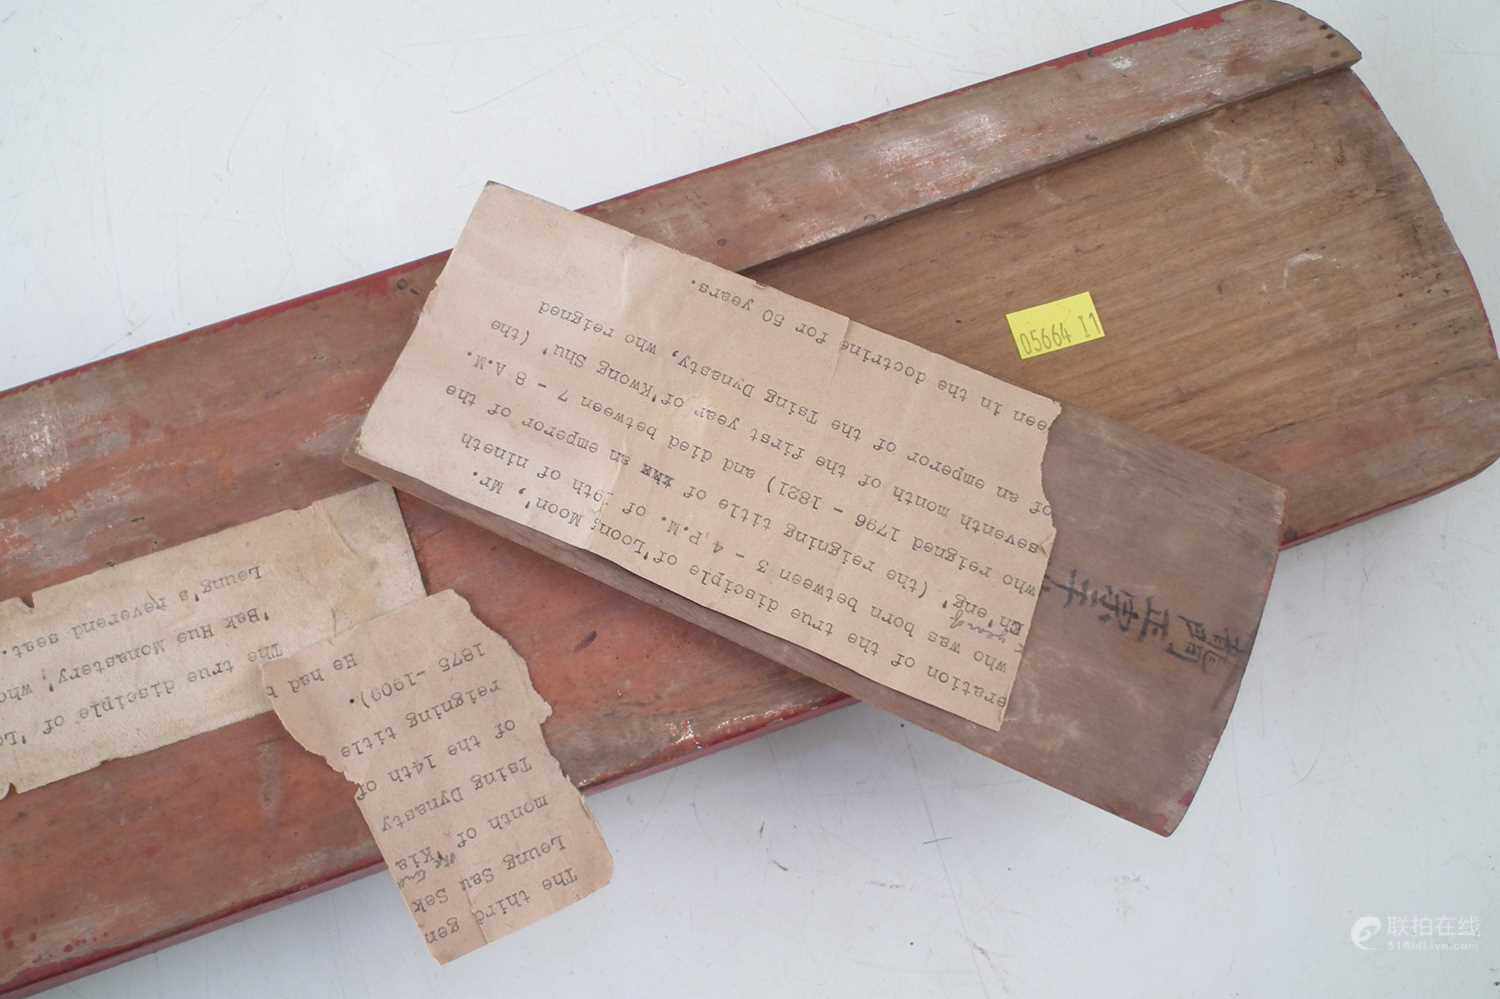 The third gen
eration of the true disciple of 'Loong Moon', Mr.
Leung Sau Sek who was born between 3 - 4 P.M. of 19th of nineth
month of the year of
'Kia Ch'eng' (the reigning title of the an emperor of the
Tsing Dynasty who reigned 1796 - 1821) and died between 7 - 8 A.M.
of the 14th of seventh month of the first year of 'Kwong Shu' (the
reigning title of an emperor of the Tsing Dynasty, who reigned
1875 -1909).
He had been in the doctrine for 50 years.
The true disciple of 'Lo
'Bak Hue Monastery', who
Leung's reverend seat.
05664 I1
龍門正宗
联拍在线
51bidlive.com